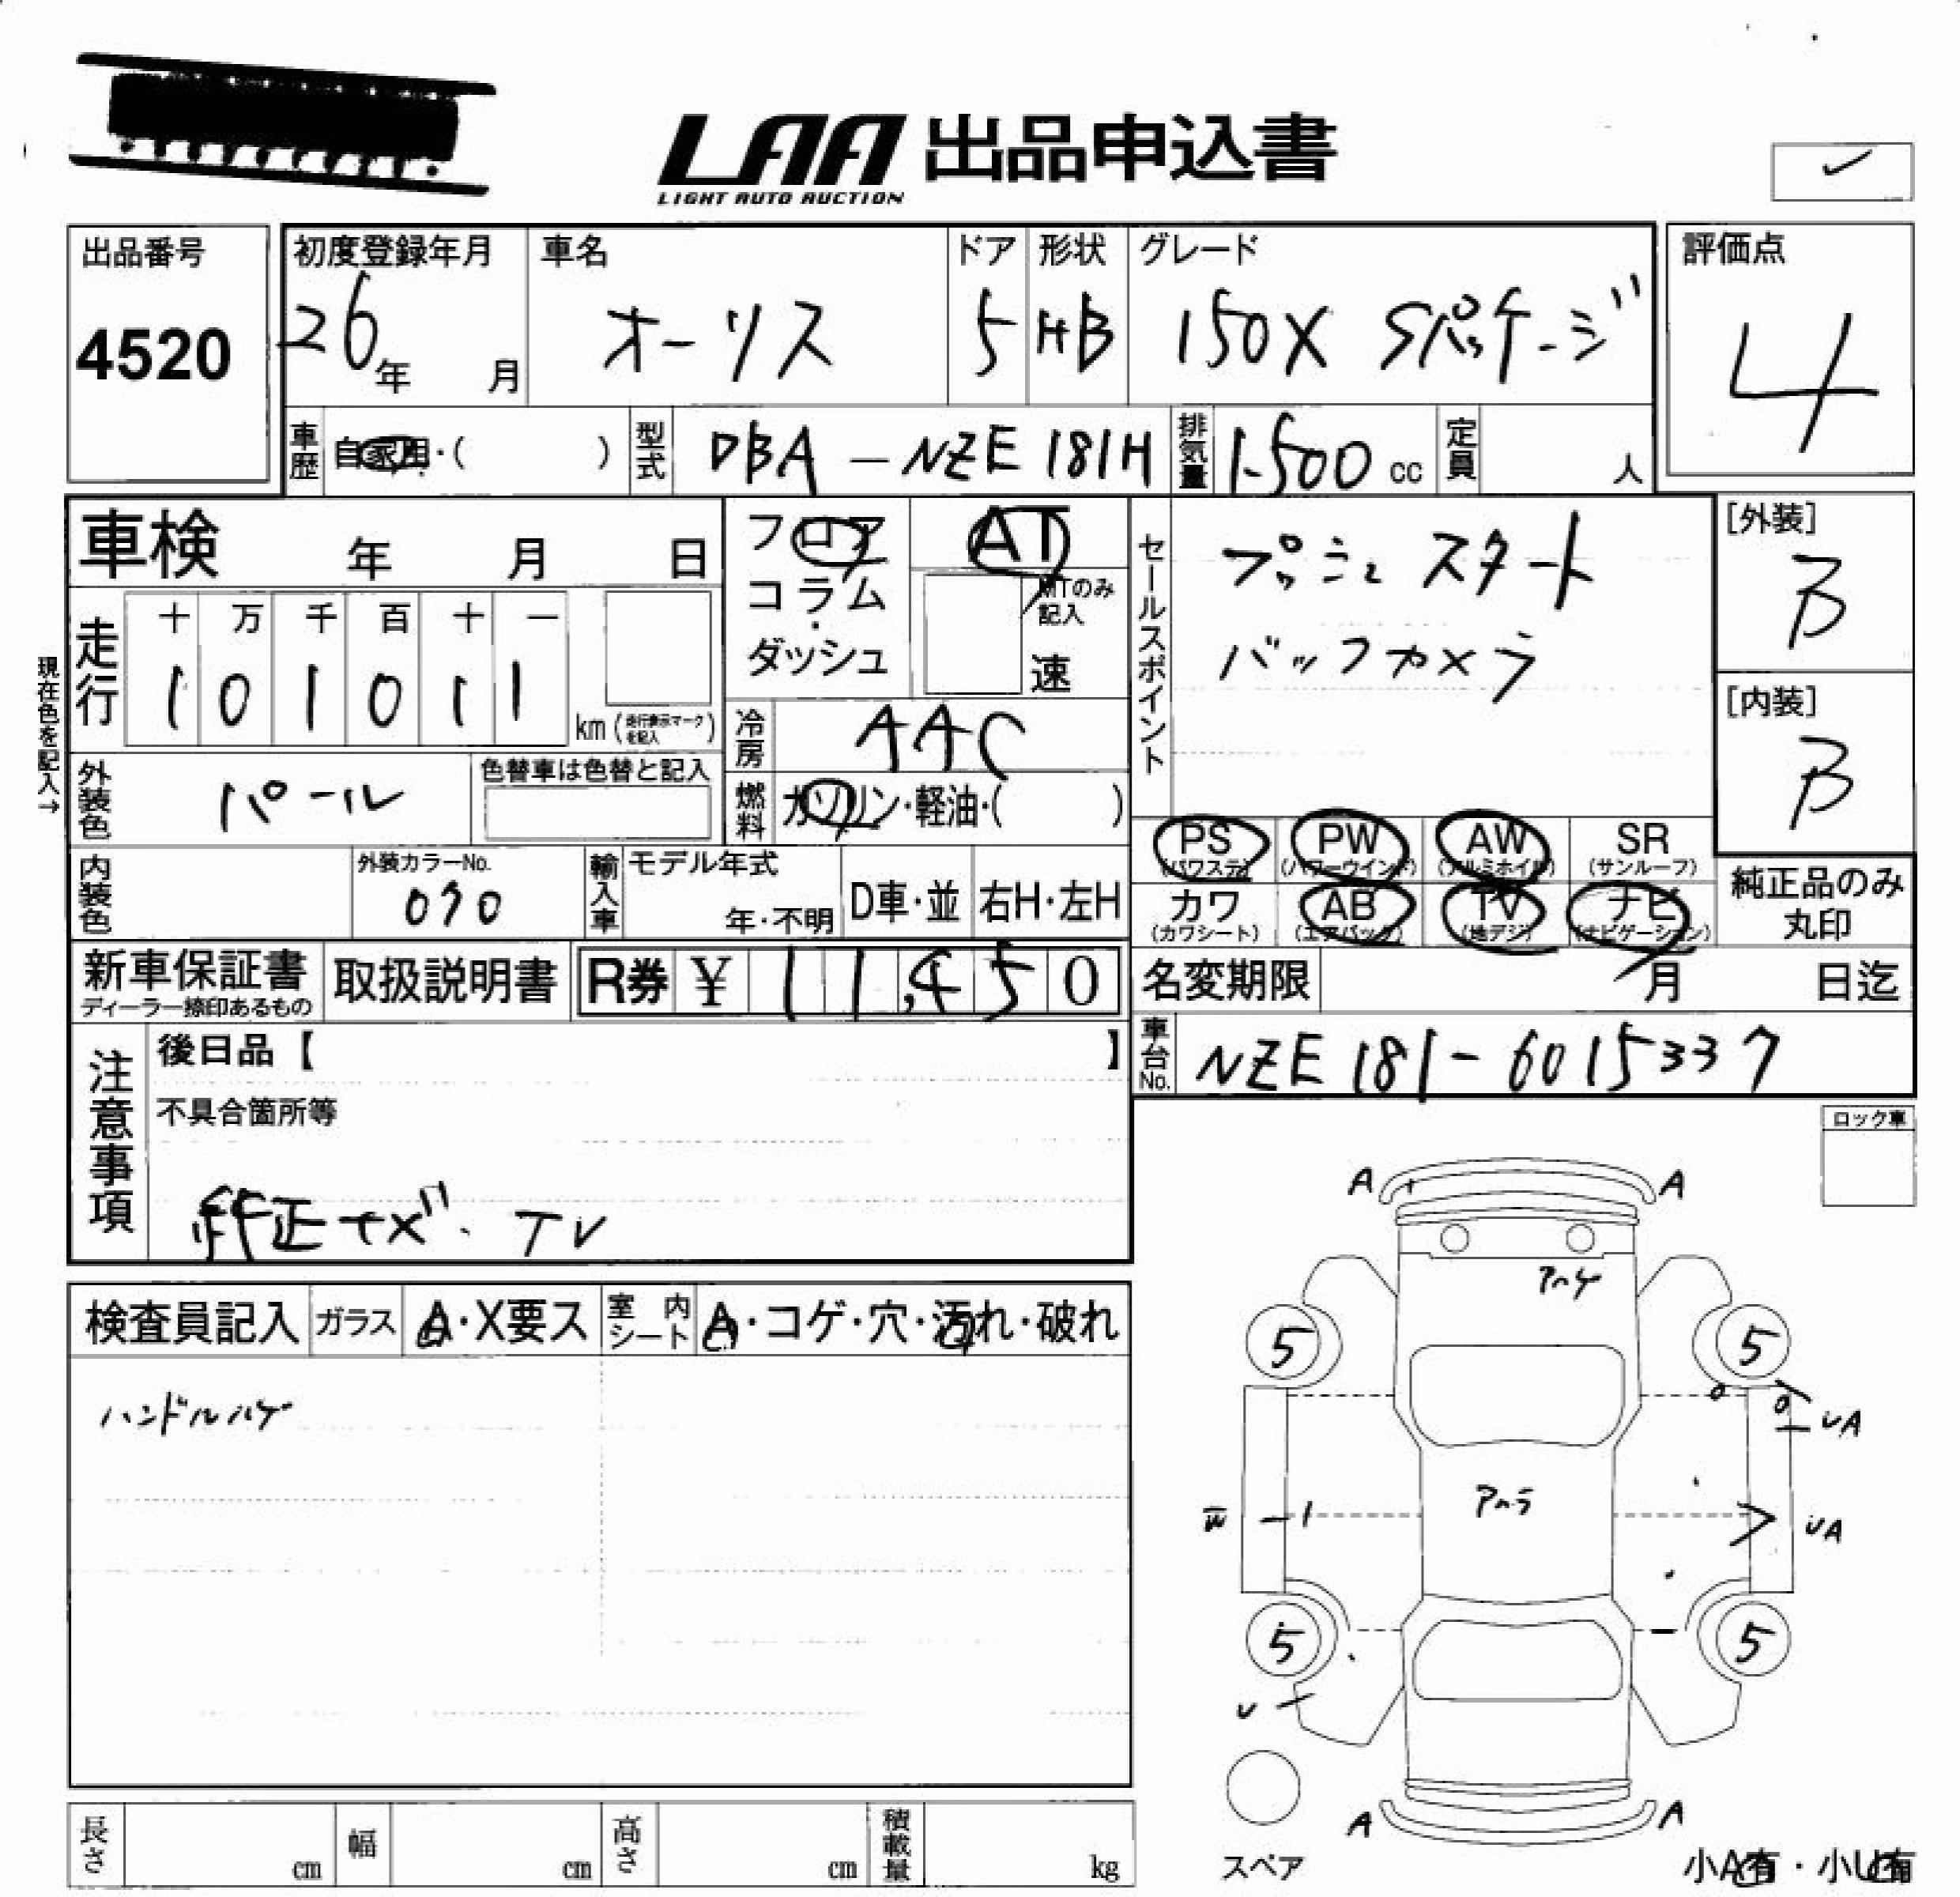 LAA 出品申込書
LIGHT AUTO AUCTION
出品番号
4520
初度登録年月
26年 月
車名
オーリス
ドア
5
形状
HB
グレード
150X Sパッケージ
評価点
4
車歴 自家用・( )
型式 DBA-NZE181H
排気量 1500 cc
定員 人
車検 年 月 日
フロア
コラム
・
ダッシュ
AT
MTのみ
記入
速
セールスポイント
プッシュスタート
バックカメラ
[外装]
B
[内装]
B
現在色を記入→
走行
十 万 千 百 十 一
1 0 1 0 1 1
km(走行表示マークを記入)
冷房 AAC
燃料 ガソリン・軽油・( )
外装色 パール
色替車は色替と記入
内装色
外装カラーNo.
070
輸入車
モデル年式
年・不明
D車・並
右H・左H
PS (パワステ)
PW (パワーウインド)
AW (アルミホイル)
SR (サンルーフ)
カワ (カワシート)
AB (エアバック)
TV (地デジ)
ナビ (ナビゲーション)
純正品のみ
丸印
新車保証書
ディーラー捺印あるもの
取扱説明書
R券 ¥ 11,450
名変期限 月 日迄
車台No. NZE181-6015337
注意事項
後日品【 】
不具合箇所等
純正ナビ・TV
ロック車
検査員記入
ガラス A・X要ス
室内シート A・コゲ・穴・汚れ・破れ
ハンドルハゲ
A A
アハゲ
5 5
UA
アハラ
W
UA
5 5
U
A A
スペア
小A有・小U有
長さ cm
幅 cm
高さ cm
積載量 kg